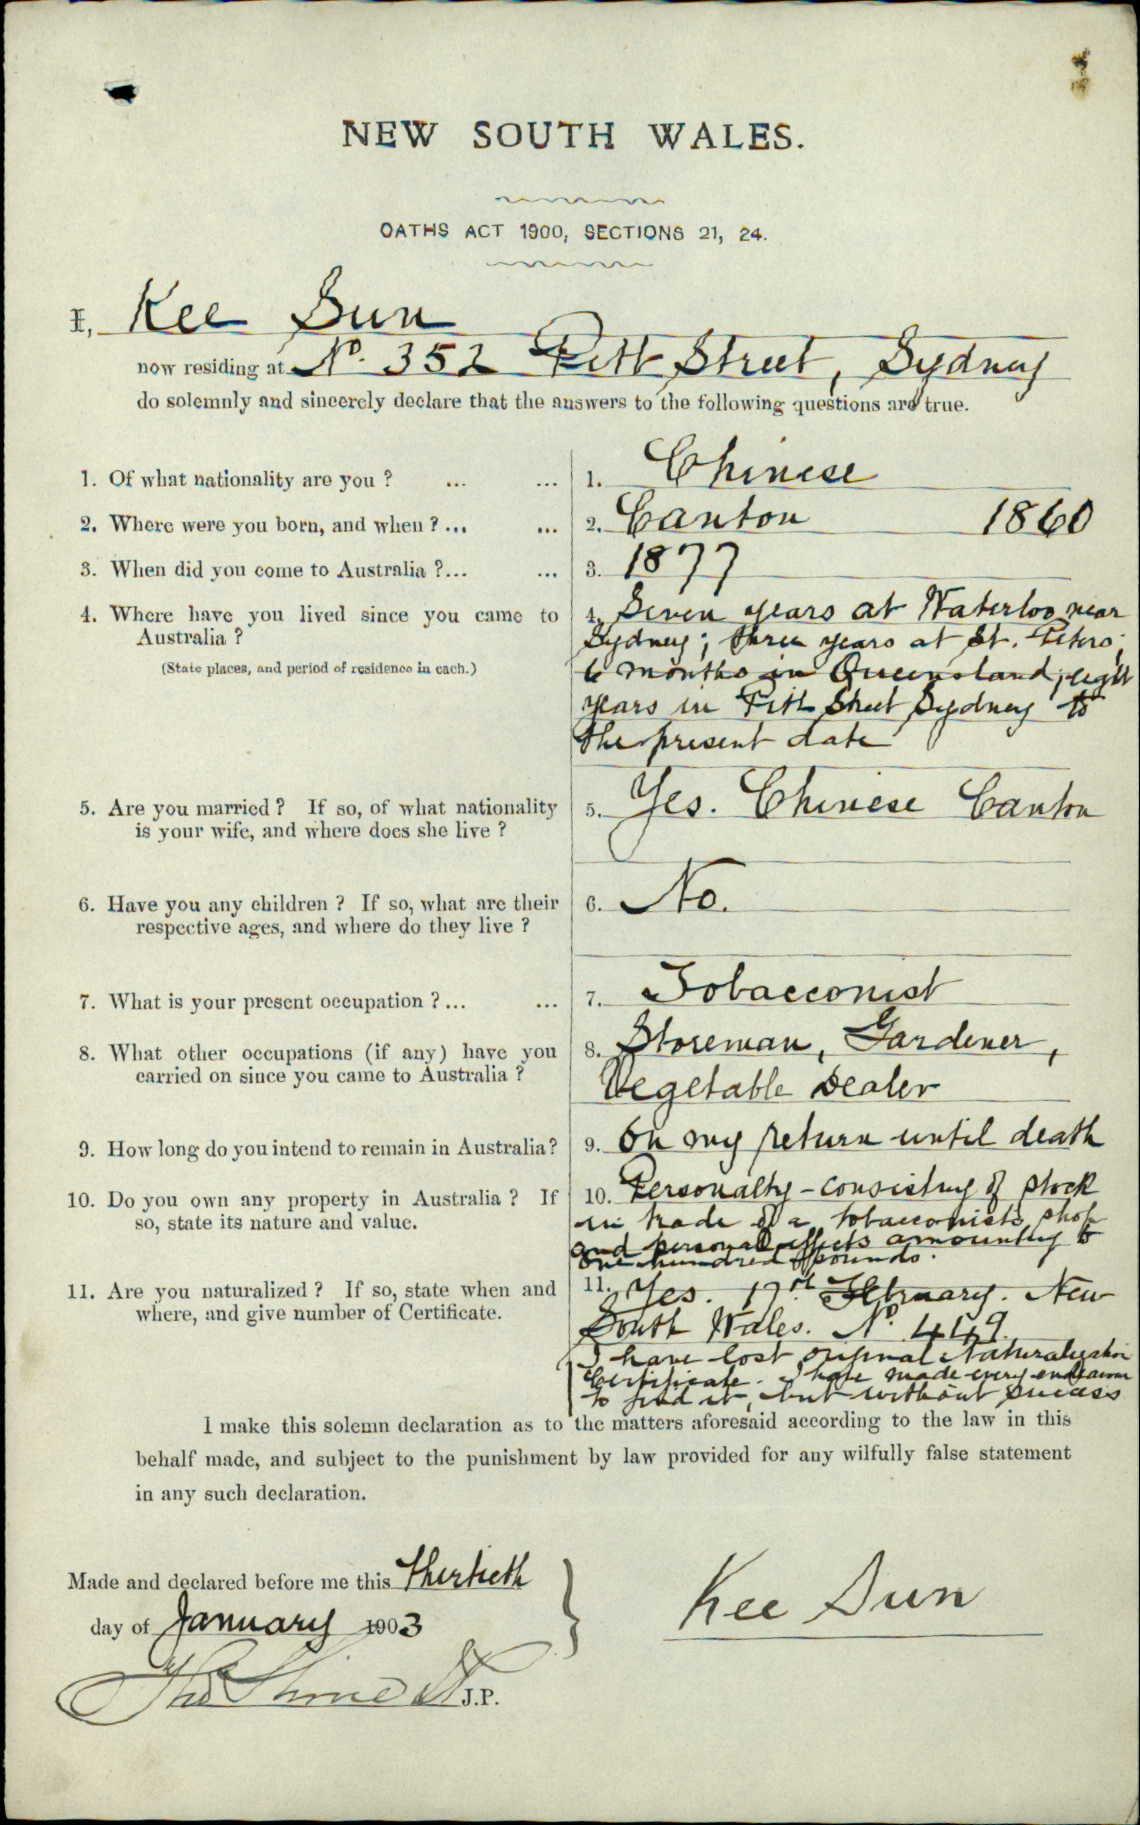 NEW SOUTH WALES.
OATHS ACT 1900, SECTIONS 21, 24.
I, Kee Sun
now residing at No. 352 Pitt Street, Sydney
do solemnly and sincerely declare that the answers to the following questions are true.
1. Of what nationality are you ? ... ... 1. Chinese
2. Where were you born, and when ? ... ... 2. Canton 1860
3. When did you come to Australia ? ... ... 3. 1877
4. Where have you lived since you came to Australia ?
(State places, and period of residence in each.)
4. Seven years at Waterloo near
Sydney; three years at St. Peters;
6 months in Queensland; eight
years in Pitt Street Sydney to
the present date
5. Are you married ? If so, of what nationality
is your wife, and where does she live ?
5. Yes. Chinese Canton
6. Have you any children ? If so, what are their
respective ages, and where do they live ?
6. No.
7. What is your present occupation ? ... ... 7. Tobacconist
8. What other occupations (if any) have you
carried on since you came to Australia ?
8. Storeman, Gardener,
Vegetable Dealer
9. How long do you intend to remain in Australia? 9. On my return until death
10. Do you own any property in Australia ? If
so, state its nature and value.
10. Personalty - consisting of stock
in trade of a tobacconists shop
and personal effects amounting to
one hundred pounds.
11. Are you naturalized ? If so, state when and
where, and give number of Certificate.
11. Yes. 17th February. New
South Wales. No. 449.
I have lost original Naturalization
Certificate. I have made every endeavour
to find it, but without success
I make this solemn declaration as to the matters aforesaid according to the law in this
behalf made, and subject to the punishment by law provided for any wilfully false statement
in any such declaration.
Made and declared before me this thirtieth
day of January 1903
Kee Sun
J.P.